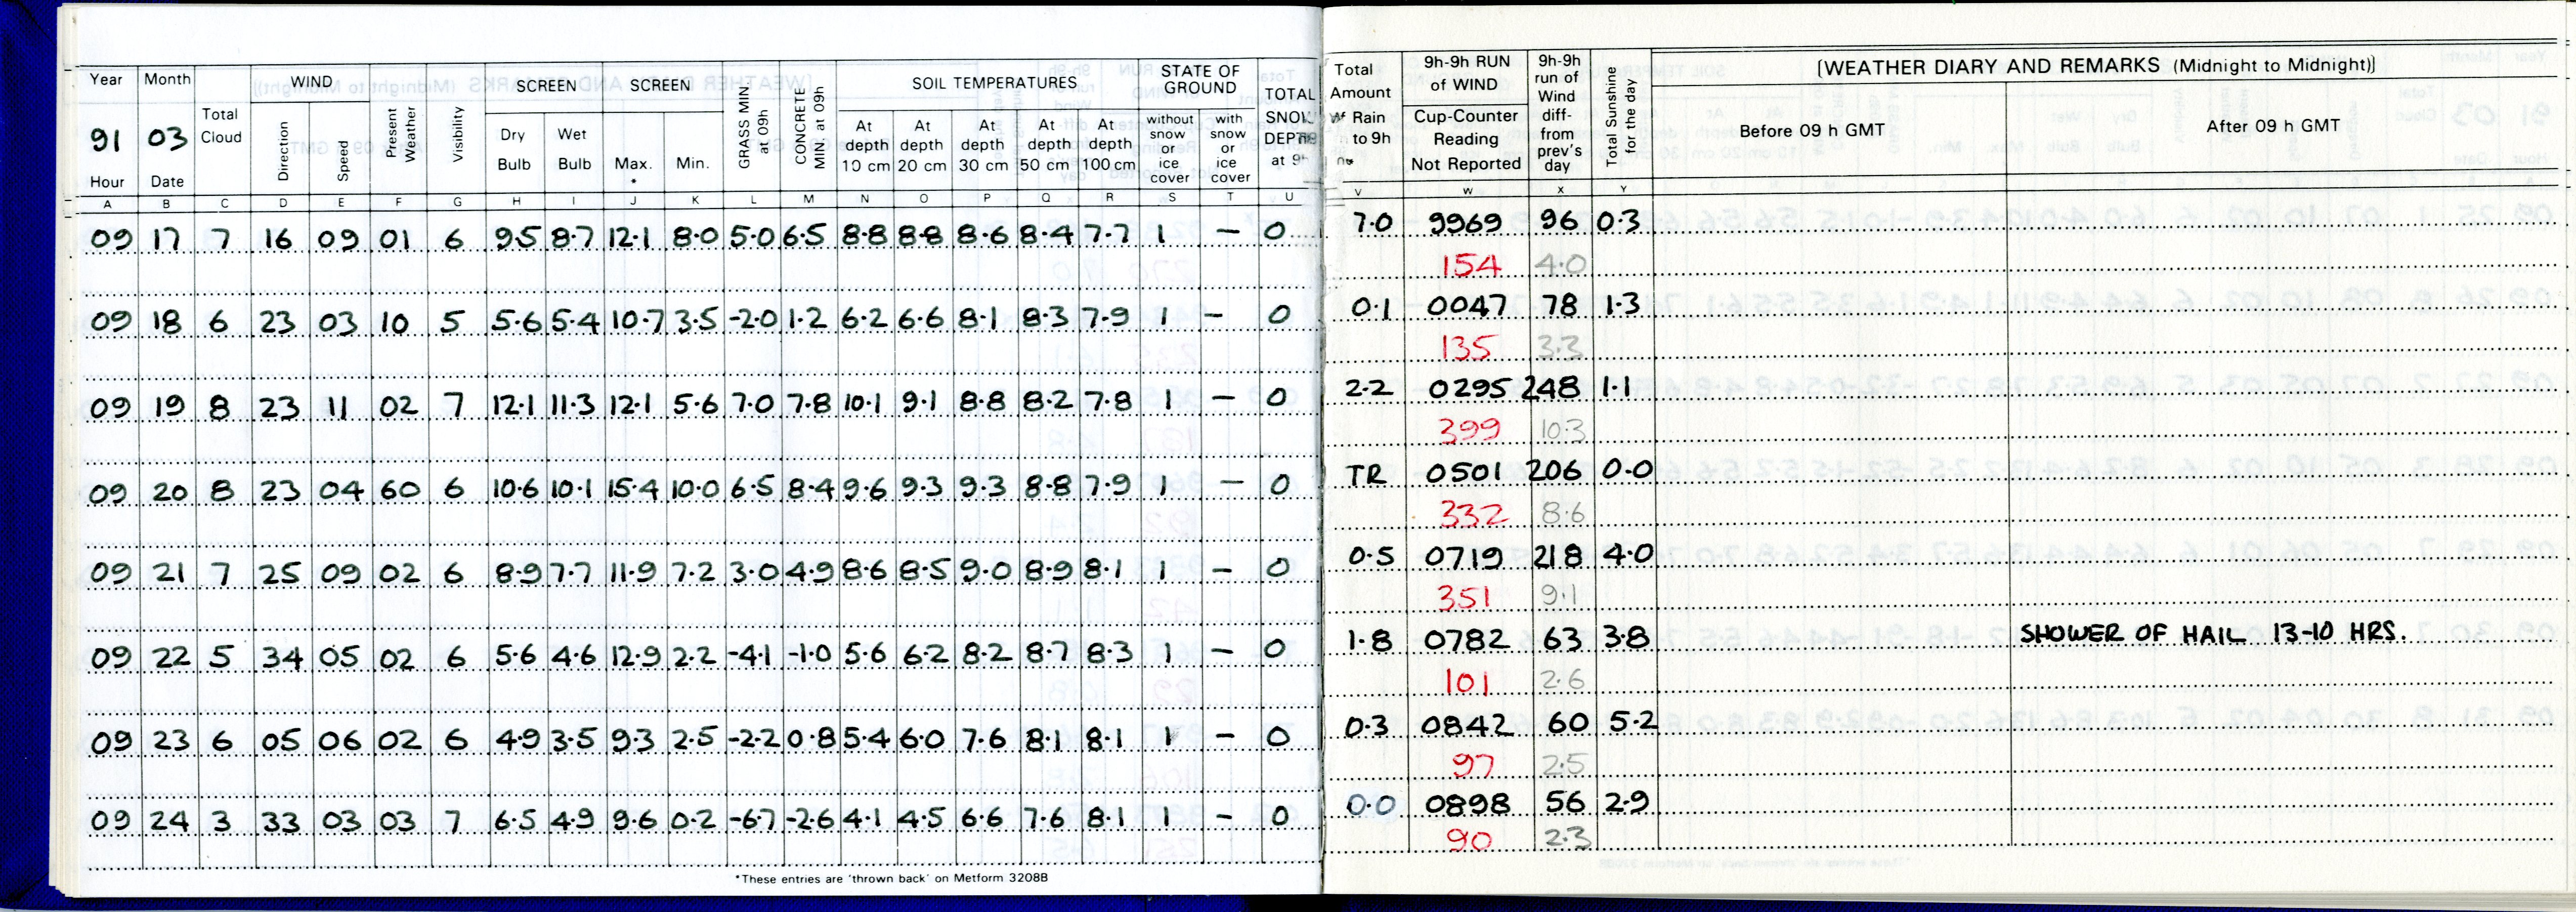 Year Month WIND SCREEN SCREEN SOIL TEMPERATURES STATE OF GROUND
91 03 Total Cloud Direction Speed Present Weather Visibility Dry Bulb Wet Bulb Max. * Min. GRASS MIN. at 09h CONCRETE MIN. at 09h At depth 10 cm At depth 20 cm At depth 30 cm At depth 50 cm At depth 100 cm without snow or ice cover with snow or ice cover TOTAL SNOW DEPTH at 9h
Hour Date
A B C D E F G H I J K L M N O P Q R S T U
09 17 7 16 09 01 6 9.5 8.7 12.1 8.0 5.0 6.5 8.8 8.8 8.6 8.4 7.7 1 — 0
09 18 6 23 03 10 5 5.6 5.4 10.7 3.5 -2.0 1.2 6.2 6.6 8.1 8.3 7.9 1 — 0
09 19 8 23 11 02 7 12.1 11.3 12.1 5.6 7.0 7.8 10.1 9.1 8.8 8.2 7.8 1 — 0
09 20 8 23 04 60 6 10.6 10.1 15.4 10.0 6.5 8.4 9.6 9.3 9.3 8.8 7.9 1 — 0
09 21 7 25 09 02 6 8.9 7.7 11.9 7.2 3.0 4.9 8.6 8.5 9.0 8.9 8.1 1 — 0
09 22 5 34 05 02 6 5.6 4.6 12.9 2.2 -4.1 -1.0 5.6 6.2 8.2 8.7 8.3 1 — 0
09 23 6 05 06 02 6 4.9 3.5 9.3 2.5 -2.2 0.8 5.4 6.0 7.6 8.1 8.1 1 — 0
09 24 3 33 03 03 7 6.5 4.9 9.6 0.2 -6.7 -2.6 4.1 4.5 6.6 7.6 8.1 1 — 0
*These entries are 'thrown back' on Metform 3208B
Total Amount of Rain to 9h 9h-9h RUN of WIND Cup-Counter Reading Not Reported 9h-9h run of Wind diff- from prev's day Total Sunshine for the day [WEATHER DIARY AND REMARKS (Midnight to Midnight)]
Before 09 h GMT After 09 h GMT
V W X Y
7.0 9969 96 0.3
154 4.0
0.1 0047 78 1.3
135 3.3
2.2 0295 248 1.1
399 10.3
TR 0501 206 0.0
332 8.6
0.5 0719 218 4.0
351 9.1
1.8 0782 63 3.8 SHOWER OF HAIL 13-10 HRS.
101 2.6
0.3 0842 60 5.2
97 2.5
0.0 0898 56 2.9
90 2.3